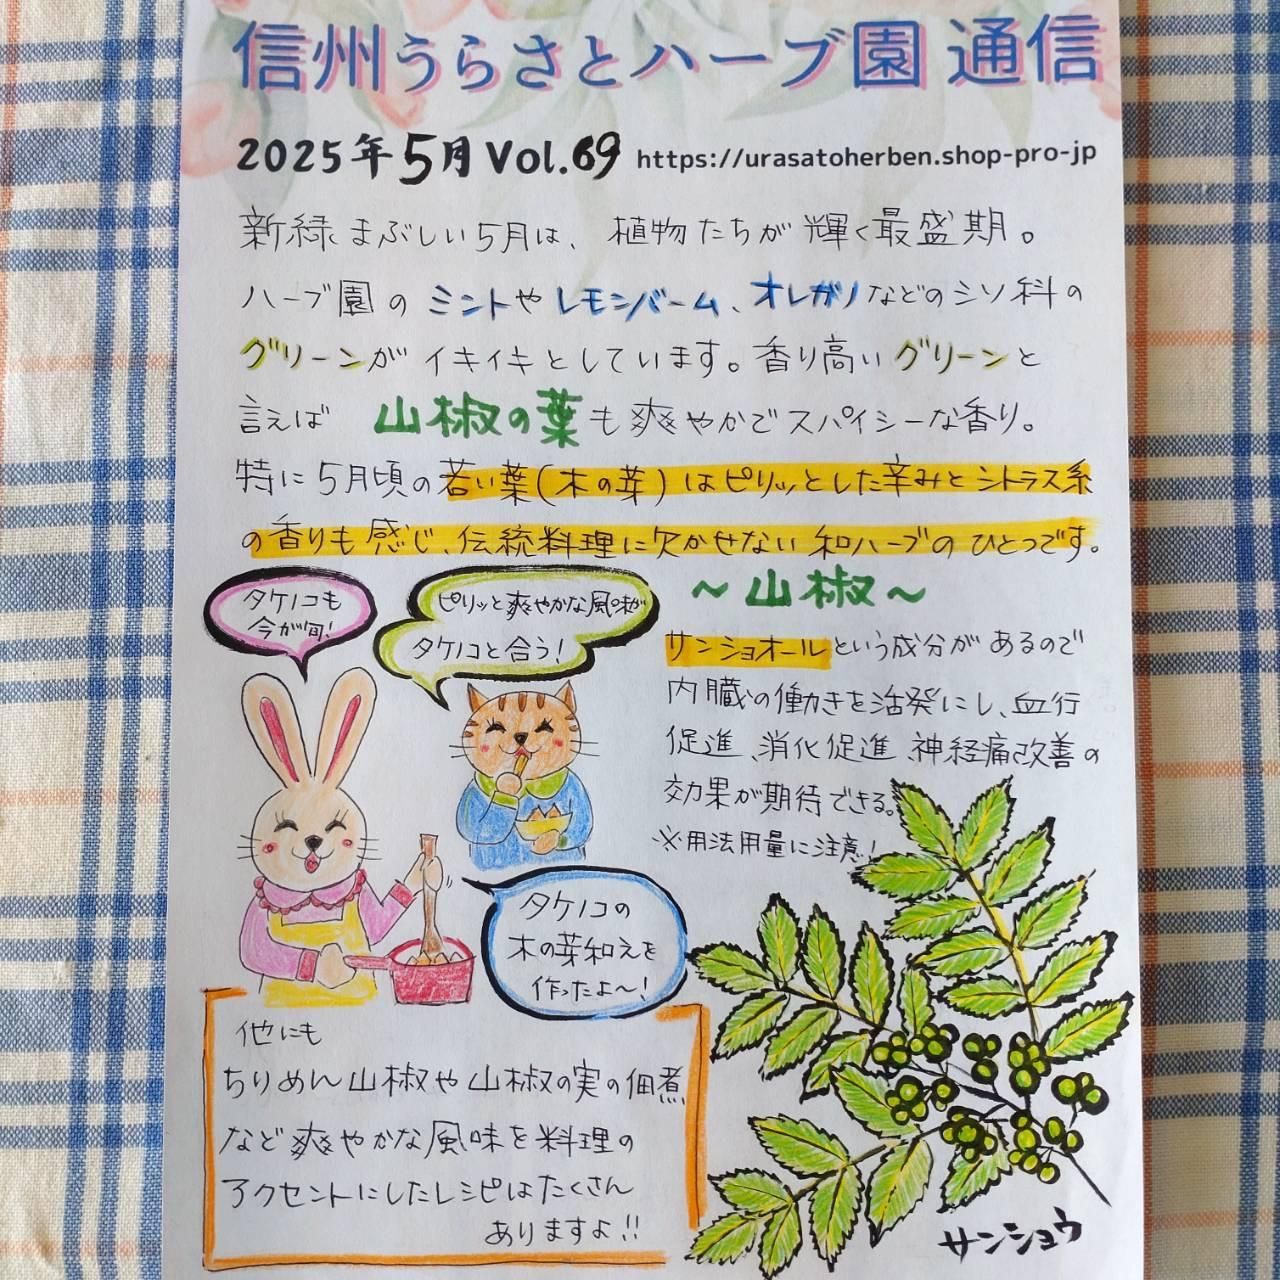 信州うらさとハーブ園 通信
2025年5月 Vol.69 https://urasatoherben.shop-pro-jp
新緑まぶしい5月は、植物たちが輝く最盛期。
ハーブ園のミントやレモンバーム、オレガノなどのシソ科の
グリーンがイキイキとしています。香り高いグリーンと
言えば 山椒の葉も爽やかでスパイシーな香り。
特に5月頃の若い葉(木の芽)はピリッとした辛みとシトラス系
の香りも感じ、伝統料理に欠かせない和ハーブのひとつです。
タケノコも
今が旬!
ピリッと爽やかな風味が
タケノコと合う!
~山椒~
サンショオールという成分があるので
内臓の働きを活発にし、血行
促進、消化促進、神経痛改善の
効果が期待できる。
※用法用量に注意!
タケノコの
木の芽和えを
作ったよ~!
他にも
ちりめん山椒や山椒の実の佃煮
など爽やかな風味を料理の
アクセントにしたレシピはたくさん
ありますよ!!
サンショウ